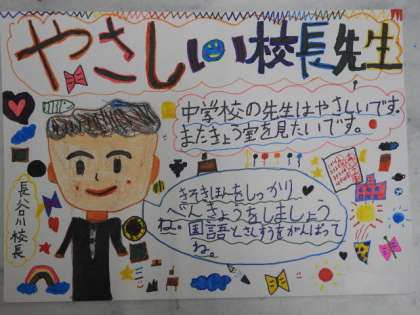 やさしい校長先生
中学校の先生はやさしいです。
またきょう室を見たいです。
きそきほんをしっかり
べんきょうをしましょう
ね。国語とさんすうをがんばって
ね。
長谷川校長